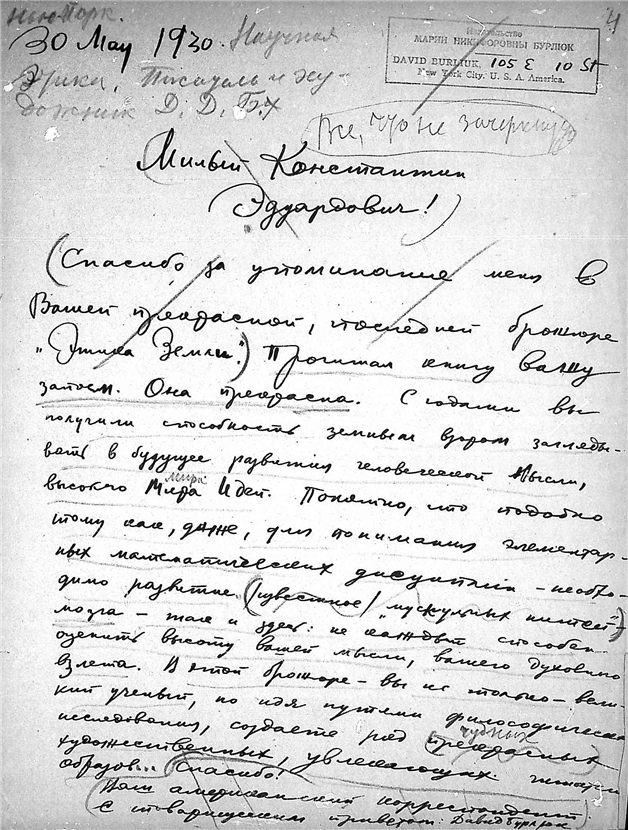 Нью-Йорк.
30 Мау 1930. Научная
Этика. Писатель и ху-
дожник Д. Д. Б.
4
Издательство
МАРИИ НИКИФОРОВНЫ БУРЛЮК
DAVID BURLIUK, 105 E 10 St
New York City. U. S. A. America.
Все, что не зачеркнуто
Милый Константин
Эдуардович!
(Спасибо за упоминание меня в
Вашей прекрасной, последней брошюре
„Этика Земли".) Прочитал книгу вашу
запоем. Она прекрасна. С годами вы
получили способность земным взором загляды-
вать в будущее развития человеческой мысли,
мира
высокого Мира Идей. Понятно, что подобно
тому как, даже, для понимания элементар-
ных математических дисциплин - необхо-
димо развитие (известное) мускульных нитей
мозга - так и здесь: не каждый способен
оценить высоту вашей мысли, вашего духовного
взлета. В этой брошюре - вы не только - вели-
кий ученый, но идя путями философическа
исследования, создаете ряд (прекрасных
чудных
художественных, увлекающих читателя
образов... Спасибо!
Ваш американский корреспондент
С товарищеским приветом: Давид Бурлюк